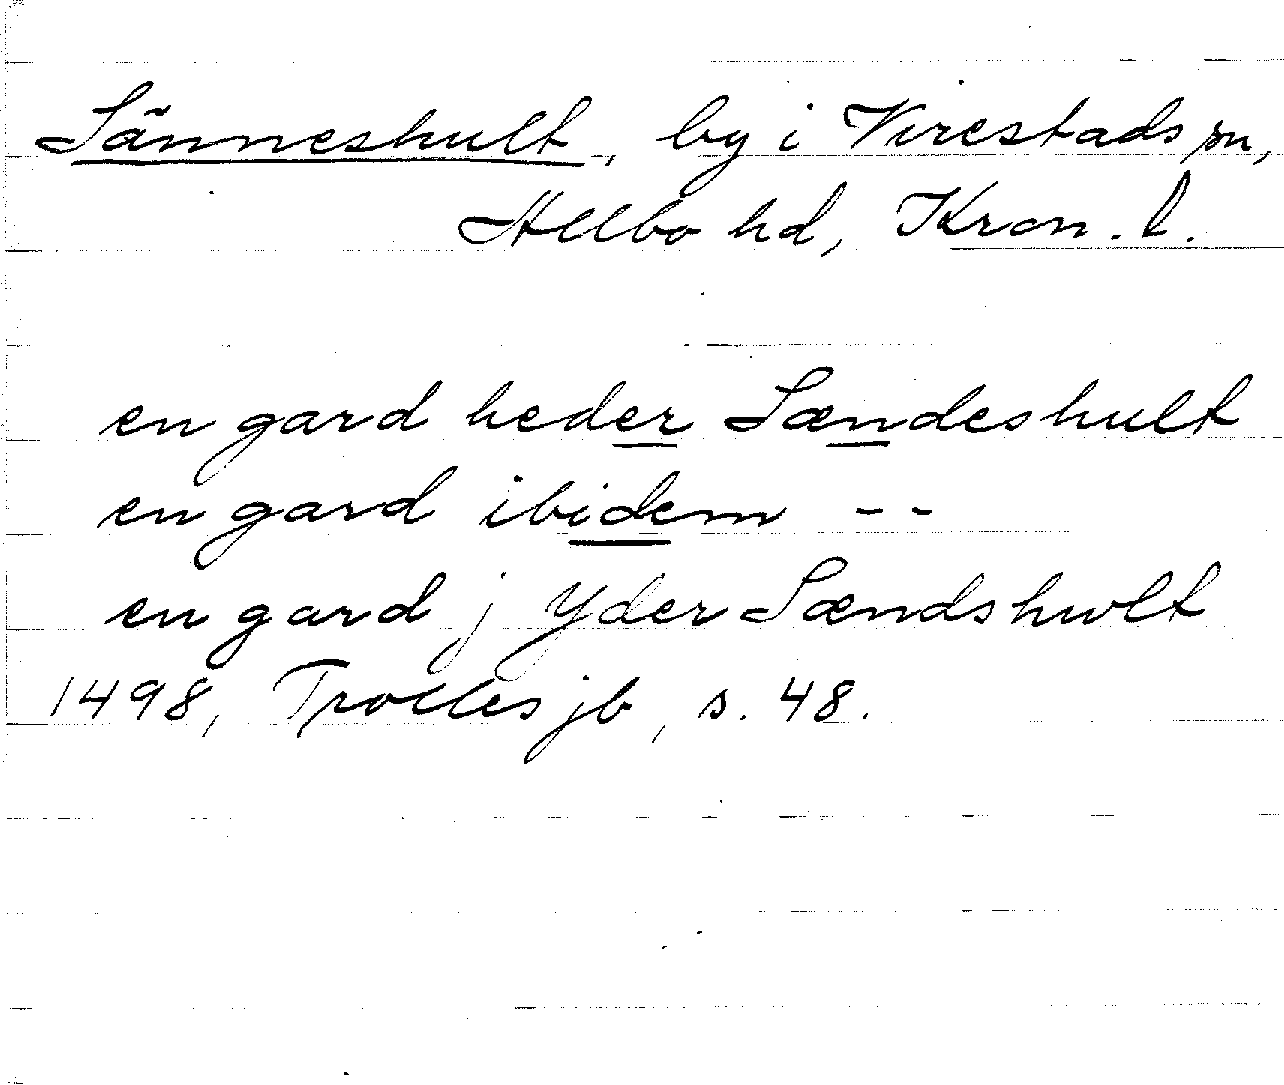 Sänneshult, by i Virestads sn,
Allbo hd, Kron. l.
en gard heder Sændeshult
en gard ibidem --
en gard j Yder Sændshwlt
1498, Trolles jb, s. 48.